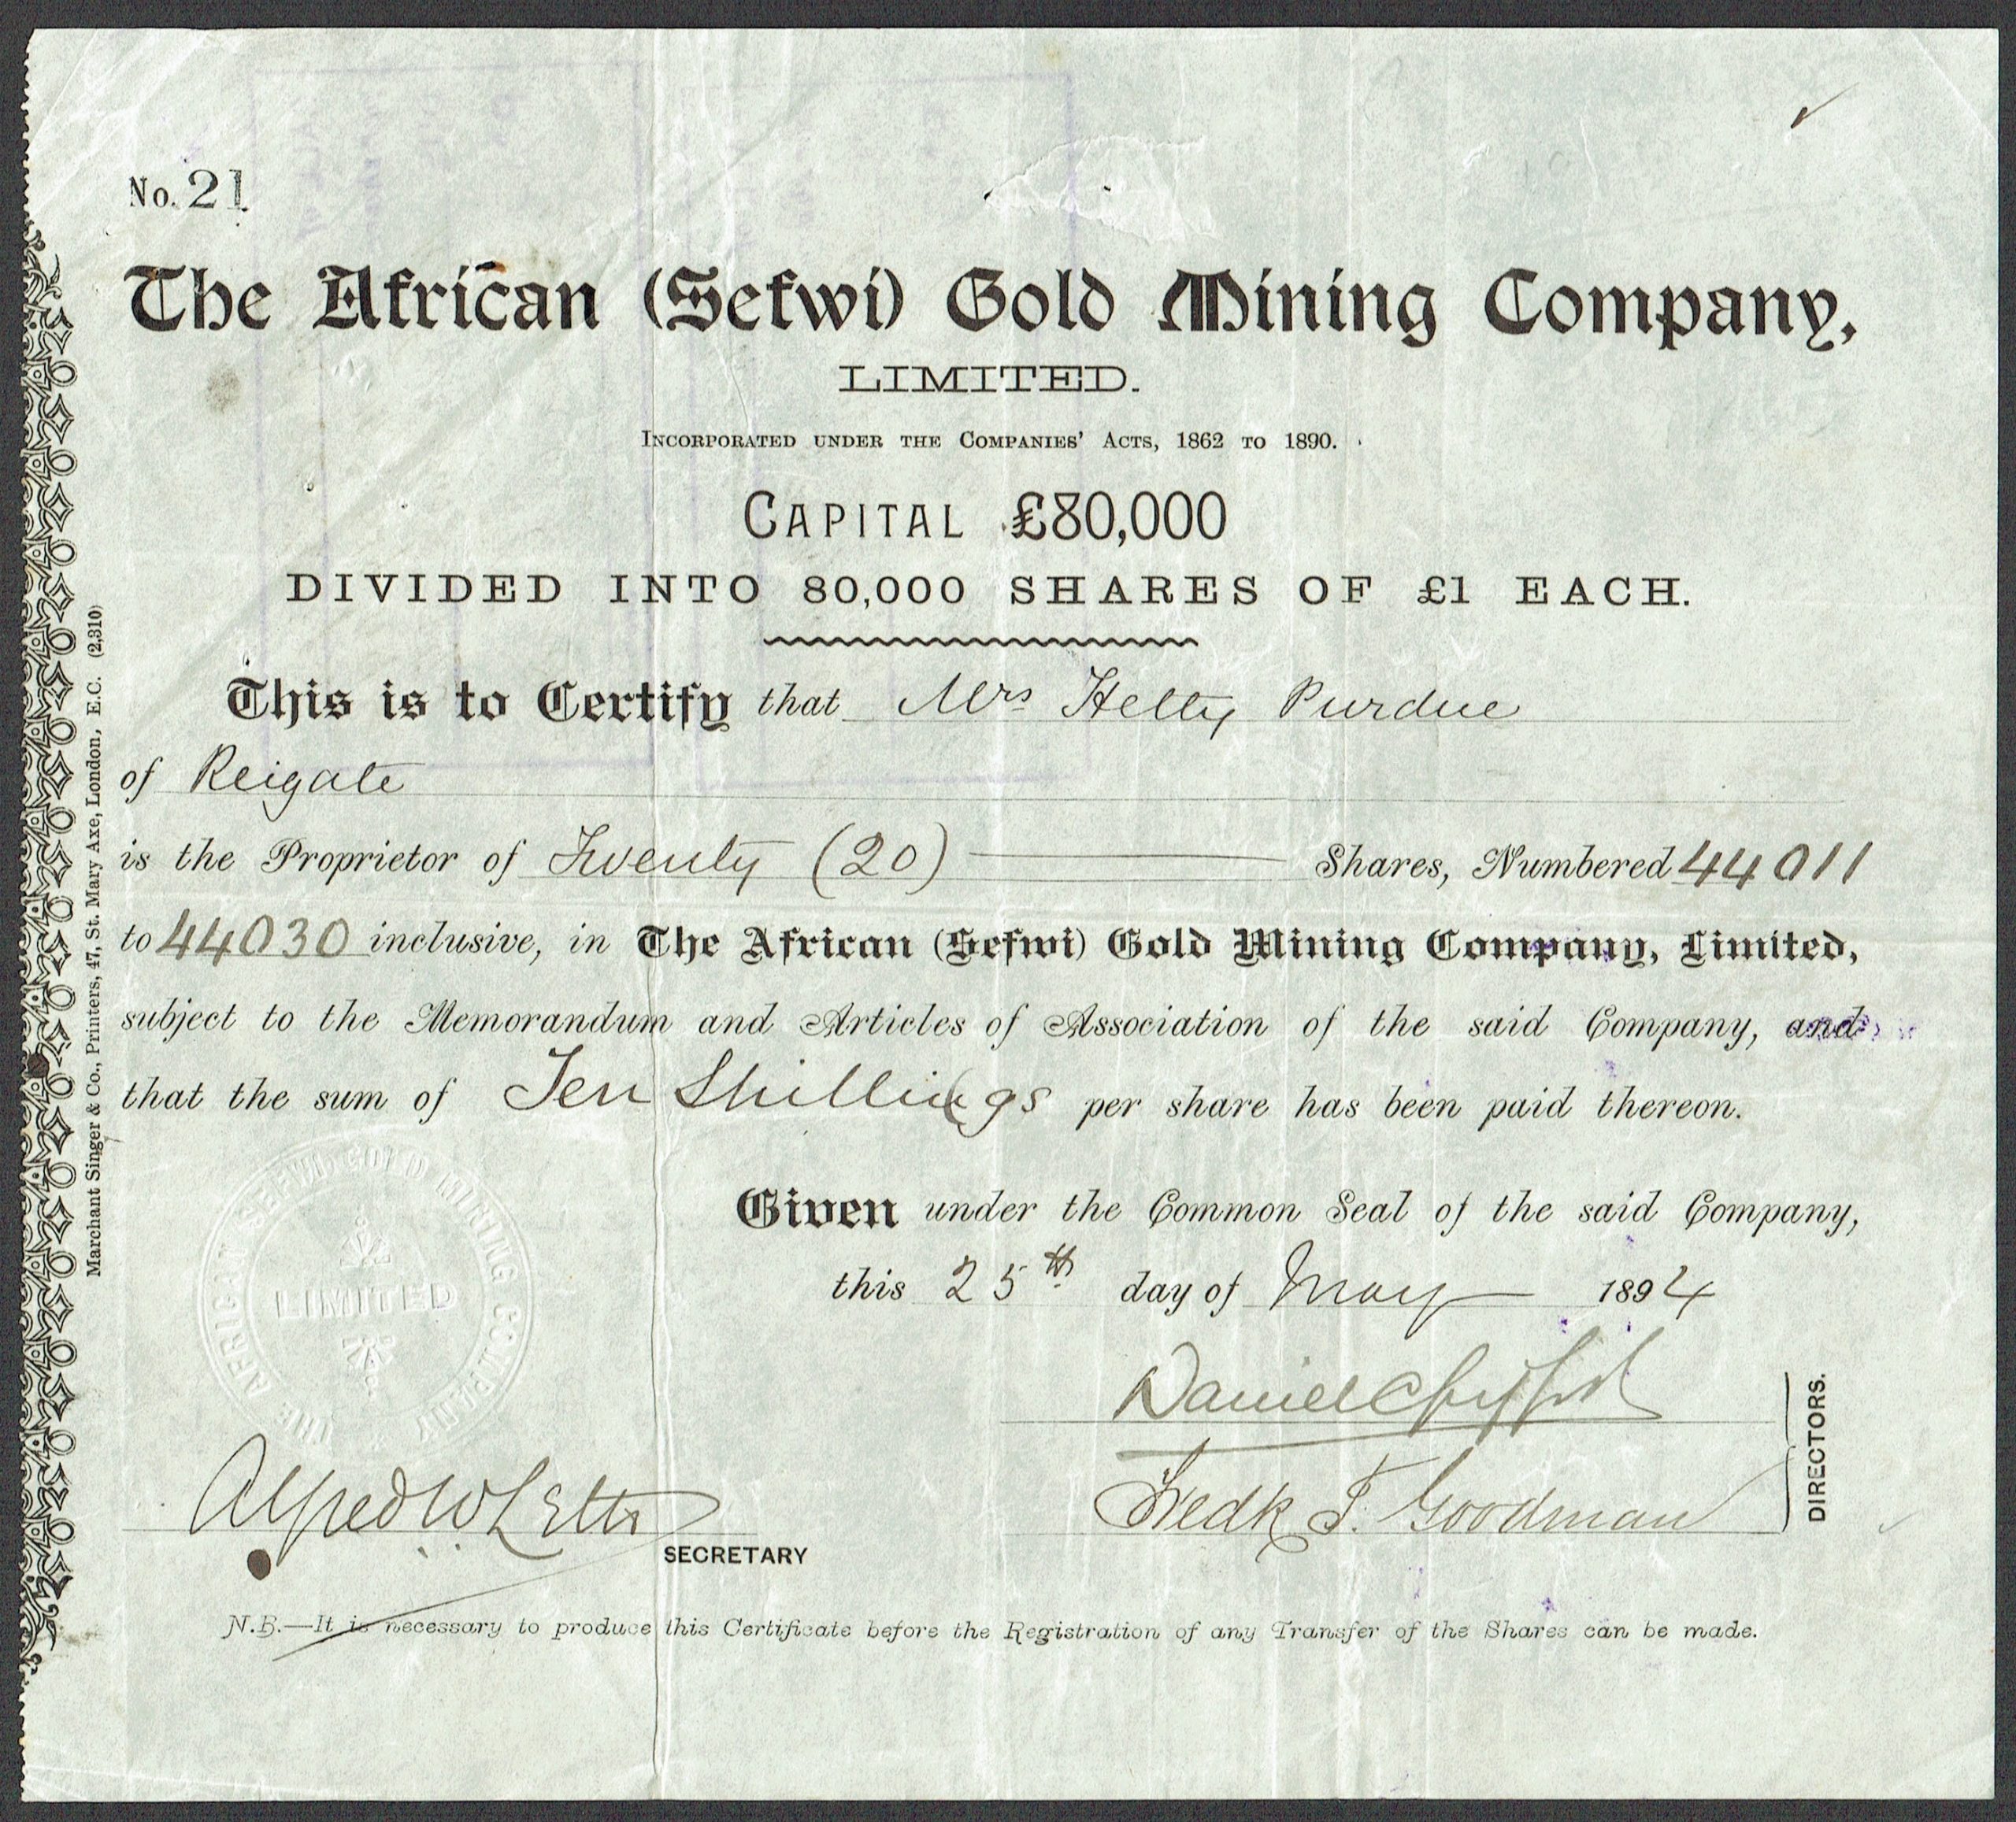 No. 21
The African (Sefwi) Gold Mining Company,
LIMITED.
INCORPORATED UNDER THE COMPANIES' ACTS, 1862 TO 1890.
CAPITAL £80,000
DIVIDED INTO 80,000 SHARES OF £1 EACH.
This is to Certify that Mrs Hetty Purdue
of Reigate
is the Proprietor of Twenty (20) Shares, Numbered 44011
to 44030 inclusive, in The African (Sefwi) Gold Mining Company, Limited,
subject to the Memorandum and Articles of Association of the said Company, and
that the sum of Ten Shillings per share has been paid thereon.
Given under the Common Seal of the said Company,
this 25th day of May 1894
Daniel
Fredk J. Goodman
DIRECTORS.
Alfred W Letts
SECRETARY
N.B.—It is necessary to produce this Certificate before the Registration of any Transfer of the Shares can be made.
THE AFRICAN SEFWI GOLD MINING COMPANY
LIMITED
Marchant Singer & Co., Printers, 47, St. Mary Axe, London, E.C. (2,310)